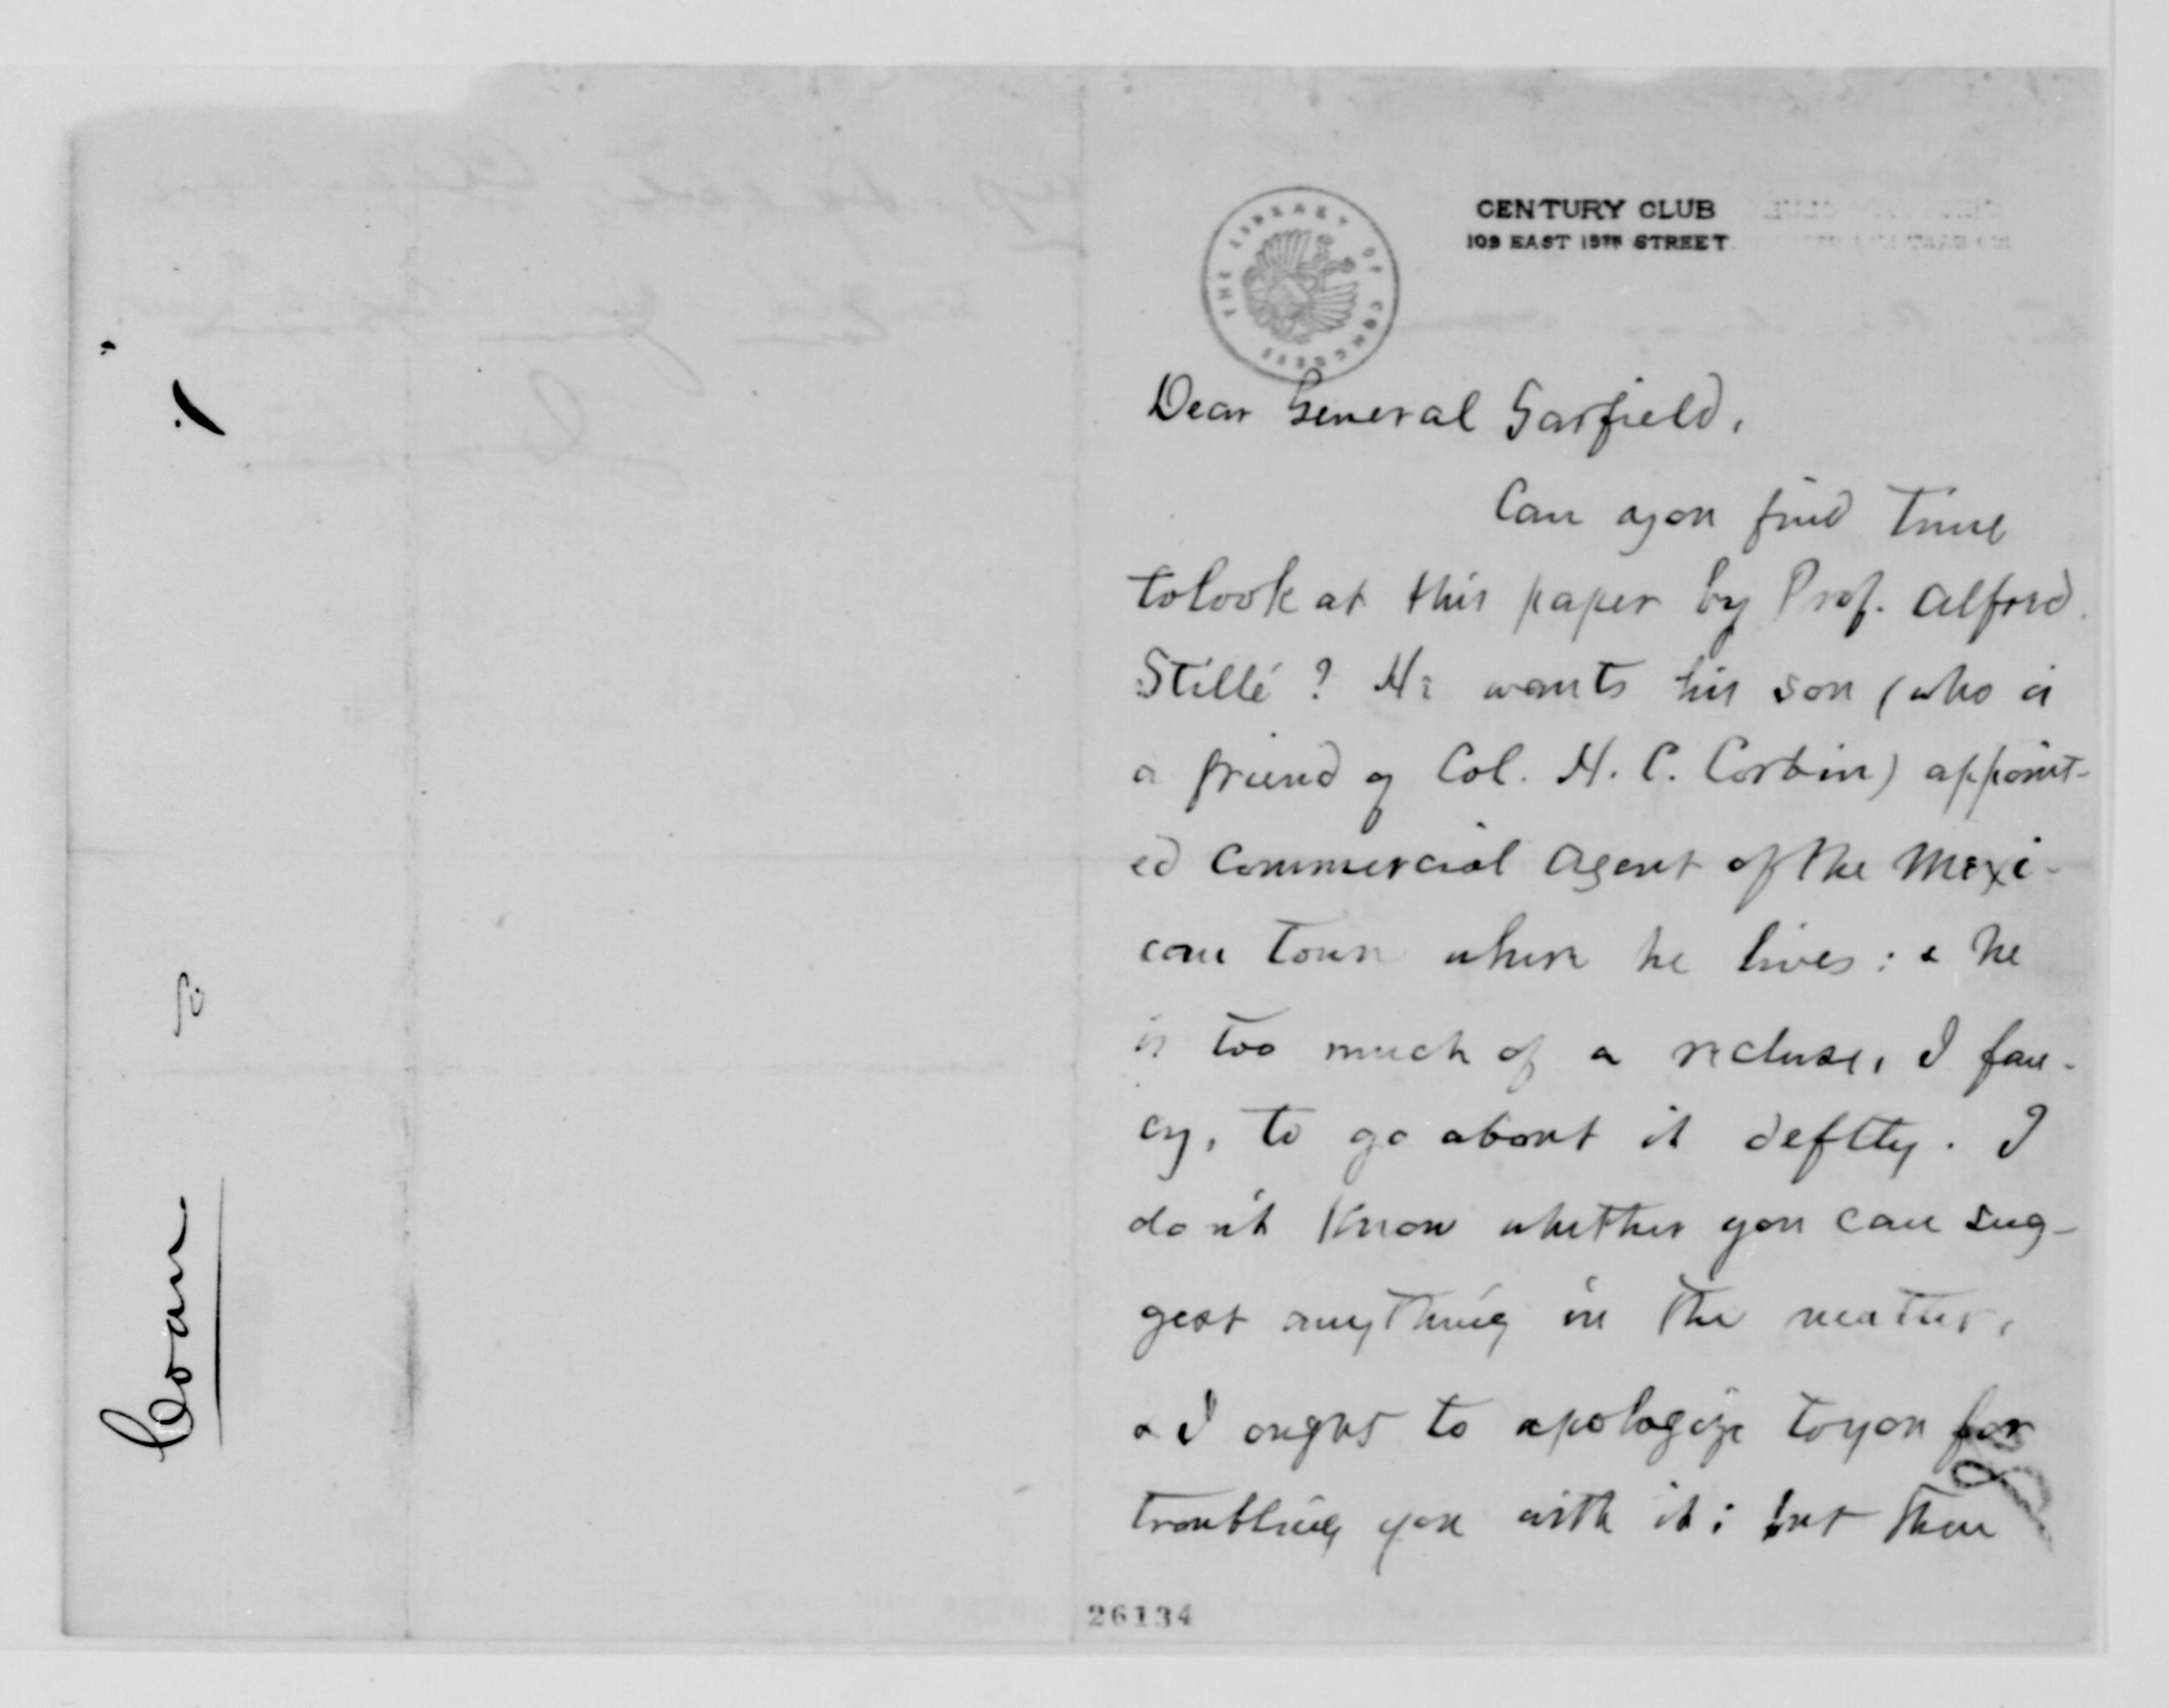 CENTURY CLUB
109 EAST 15TH STREET
THE LIBRARY OF CONGRESS
Dear General Garfield,
Can you find time
to look at this paper by Prof. Alfred
Stillé? He wants his son (who is
a friend of Col. H. C. Corbin) appoint-
ed Commercial Agent of the Mexi-
can town where he lives: & he
is too much of a recluse, I fan-
cy, to go about it deftly. I
don't know whether you can sug-
gest anything in the matter,
& I ought to apologize to you for
troubling you with it: but then
26134
Coan